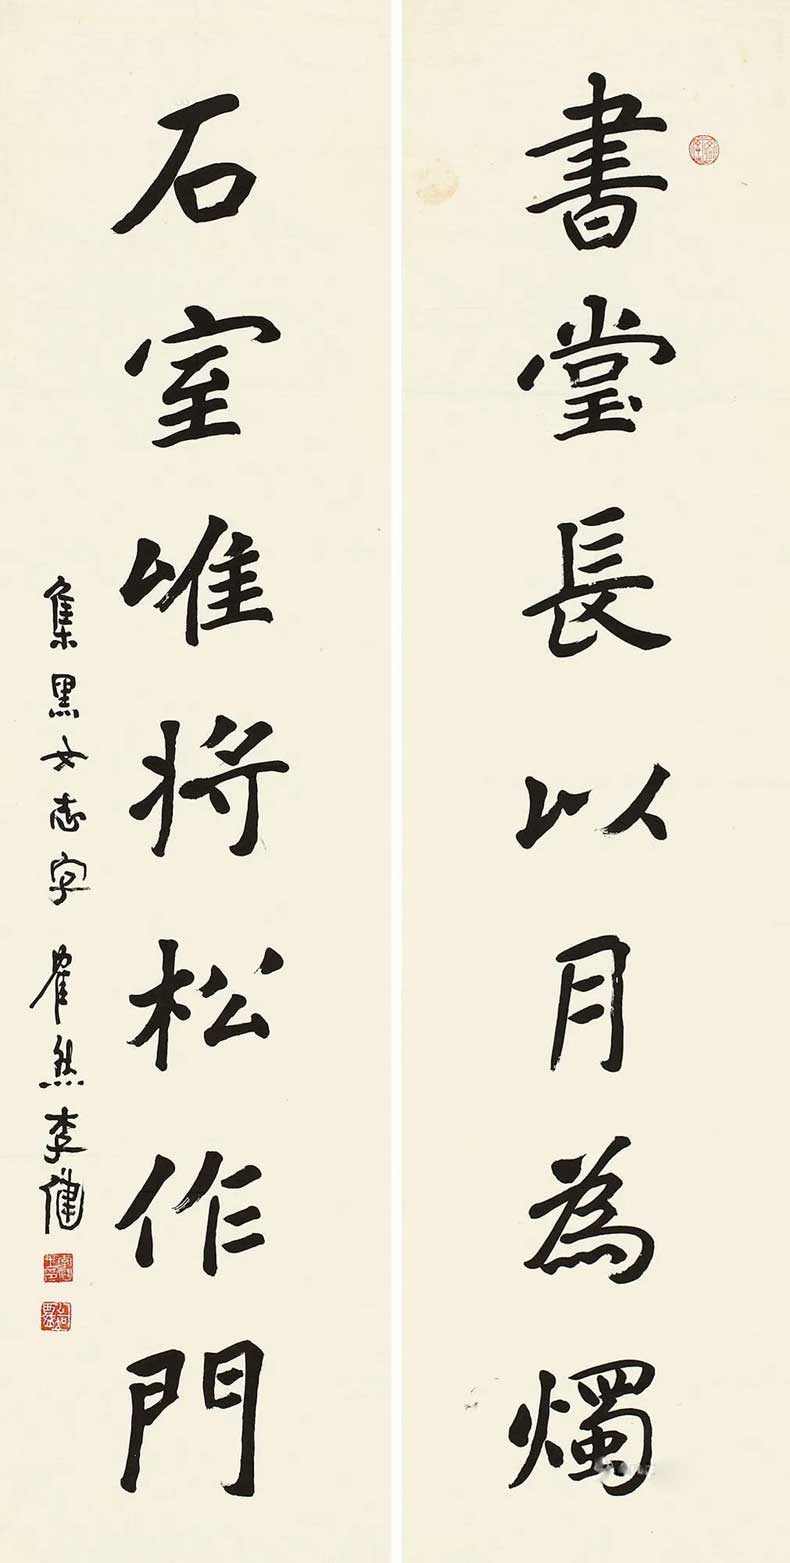 書堂長以月為燭
石室唯将松作門
集黑女志字 崔然李健